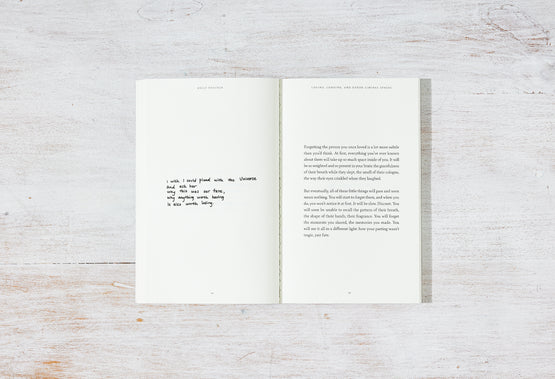 HOLLY POYNTER
i wish I could plead with the Universe
and ask her
why this was our fate,
why anything worth having
is also worth losing.
LOVING, LONGING, AND OTHER LIMINAL SPACES
Forgetting the person you once loved is a lot more subtle
than you'd think. At first, everything you've ever known
about them will take up so much space inside of you. It will
be so weighted and so present in your brain: the gracefulness
of their breath while they slept, the smell of their cologne,
the way their eyes crinkled when they laughed.
But eventually, all of these little things will pass and soon
mean nothing. You will start to forget them, and when you
do, you won't notice it at first. It will be slow. Discreet. You
will soon be unable to recall the pattern of their breath,
the shape of their hands, their fragrance. You will forget
the moments you shared, the memories you made. You
will see it all in a different light: how your parting wasn't
tragic, just fate.